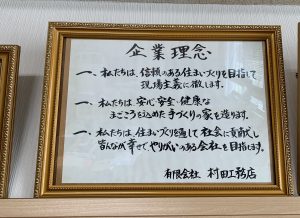 企業理念
一、私たちは、信頼のある住まいづくりを目指して
現場主義に徹します。
一、私たちは、安心・安全・健康な
まごころを込めた手づくりの家を造ります。
一、私たちは、住まいづくりを通して社会に貢献し
皆んなが幸せでやりがいのある会社を目指します。
有限会社 村田工務店